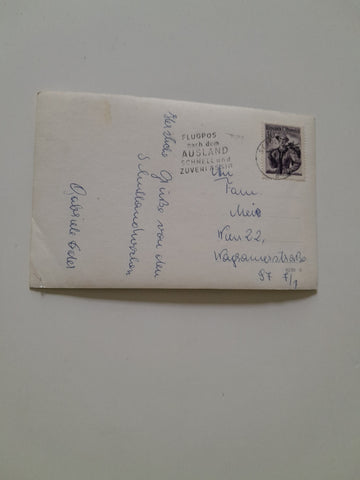 Herzliche Grüße von den
Schullandwochen
Gabriele Eder
FLUGPOST
nach dem
AUSLAND
SCHNELL und
ZUVERLÄSSIG
An
Fam.
Wien 22,
Wagramerstraße
7/1